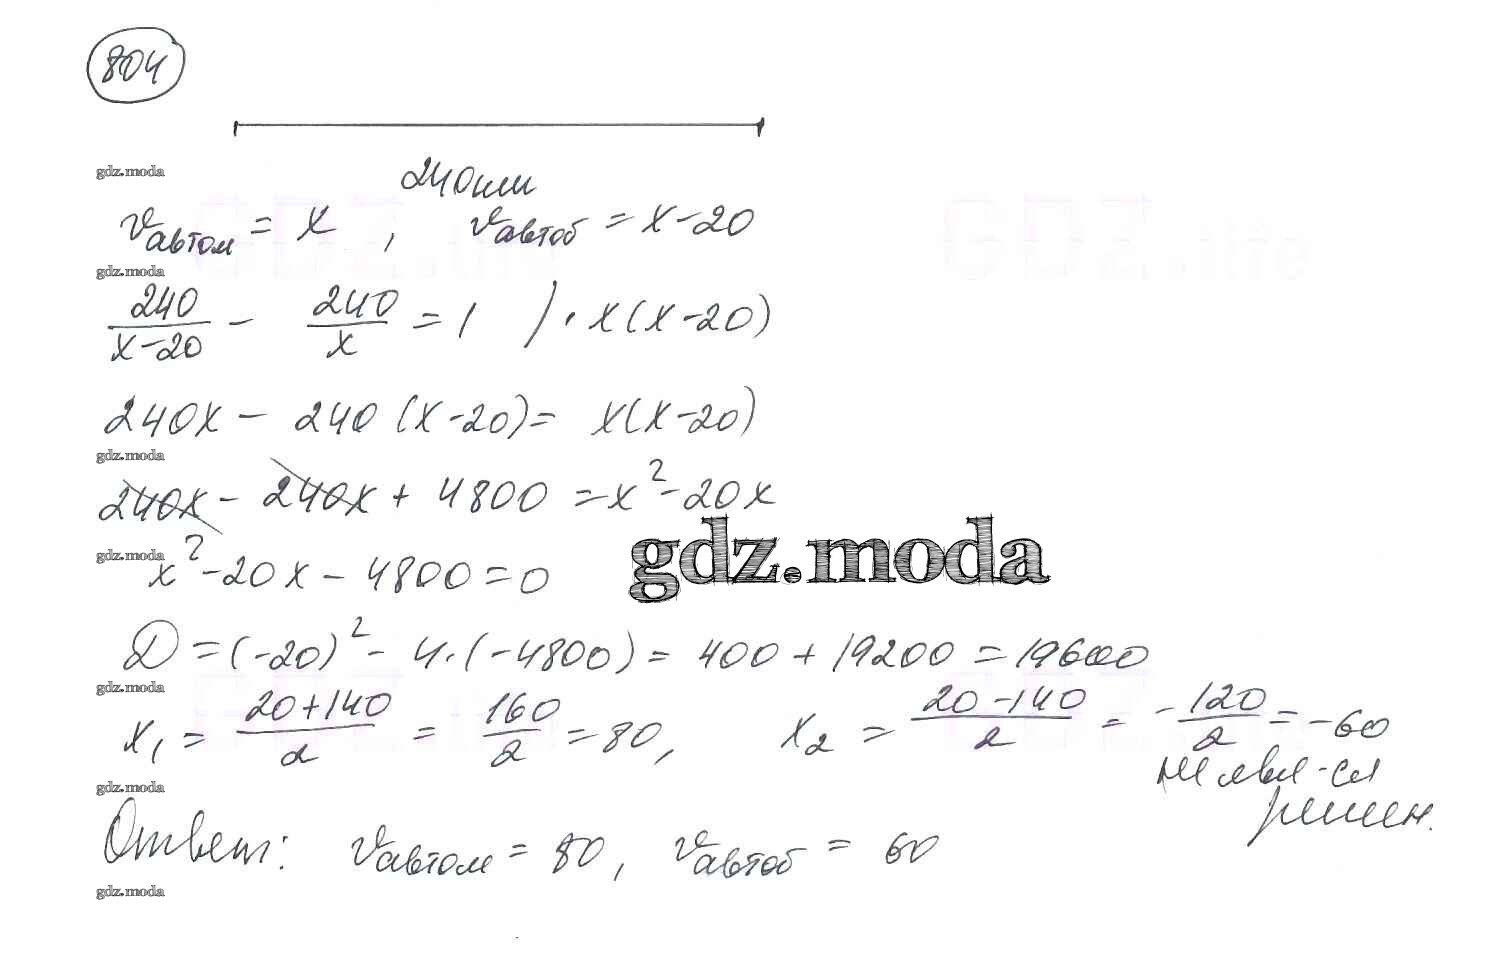 804
gdz.moda
240км
vавтом = x , vавтоб = x-20
gdz.moda
240/(x-20) - 240/x = 1 ) · x(x-20)
240x - 240(x-20) = x(x-20)
gdz.moda
240x - 240x + 4800 = x² - 20x
gdz.moda
gdz.moda
x² - 20x - 4800 = 0
D = (-20)² - 4·(-4800) = 400 + 19200 = 19600
gdz.moda
x₁ = (20+140)/2 = 160/2 = 80, x₂ = (20-140)/2 = -120/2 = -60
не явл-ся
решен.
gdz.moda
Ответ: vавтом = 80, vавтоб = 60
gdz.moda
GDZ.life
GDZ.life
GDZ.life
GDZ.life